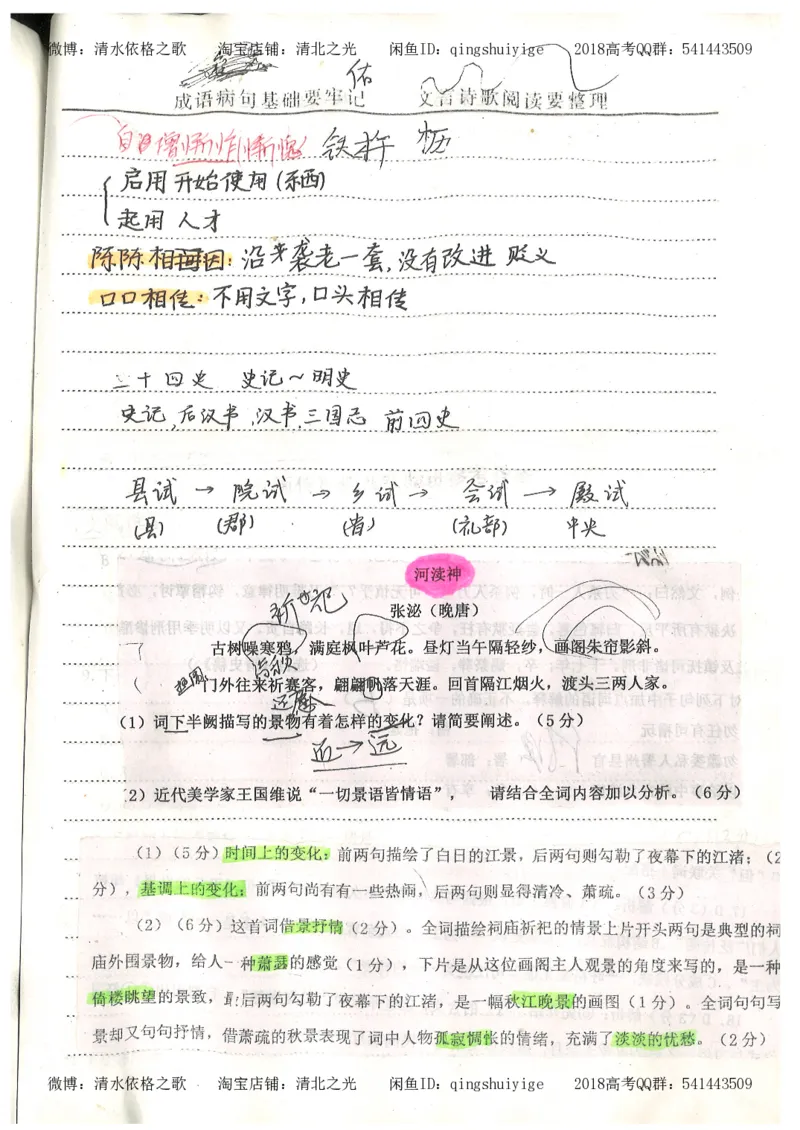 微博：清水依格之歌 淘宝店铺：清北之光 闲鱼ID：qingshuiyige 2018高考QQ群：541443509
佑
成语病句基础要牢记 文言诗歌阅读要整理
铁杵
启用 开始使用(东西)
起用 人才
陈陈相因：沿袭老一套,没有改进 贬义
口口相传：不用文字,口头相传
二十四史 史记～明史
史记,后汉书,汉书,三国志 前四史
县试 → 院试 → 乡试 → 会试 → 殿试
(县) (郡) (省) (礼部) 中央
河渎神
张泌（晚唐）
古树噪寒鸦，满庭枫叶芦花。昼灯当午隔轻纱，画阁朱帘影斜。
门外往来祈赛客，翩翩帆落天涯。回首隔江烟火，渡头三两人家。
还愿
(1）词下半阙描写的景物有着怎样的变化？请简要阐述。（5分）
近→远
2）近代美学家王国维说“一切景语皆情语”， 请结合全词内容加以分析。（6分）
（1）（5分）时间上的变化：前两句描绘了白日的江景，后两句则勾勒了夜幕下的江渚；（2
分），基调上的变化：前两句尚有有一些热闹，后两句则显得清冷、萧疏。（3分）
（2）（6分）这首词借景抒情（2分）。全词描绘祠庙祈祀的情景上片开头两句是典型的祠
庙外围景物，给人一种萧瑟的感觉（1分），下片是从这位画阁主人观景的角度来写的，是一种
倚楼眺望的景致，最后两句勾勒了夜幕下的江渚，是一幅秋江晚景的画图（1分）。全词句句写
景却又句句抒情，借萧疏的秋景表现了词中人物孤寂惆怅的情绪，充满了淡淡的忧愁。（2分）
微博：清水依格之歌 淘宝店铺：清北之光 闲鱼ID：qingshuiyige 2018高考QQ群：541443509